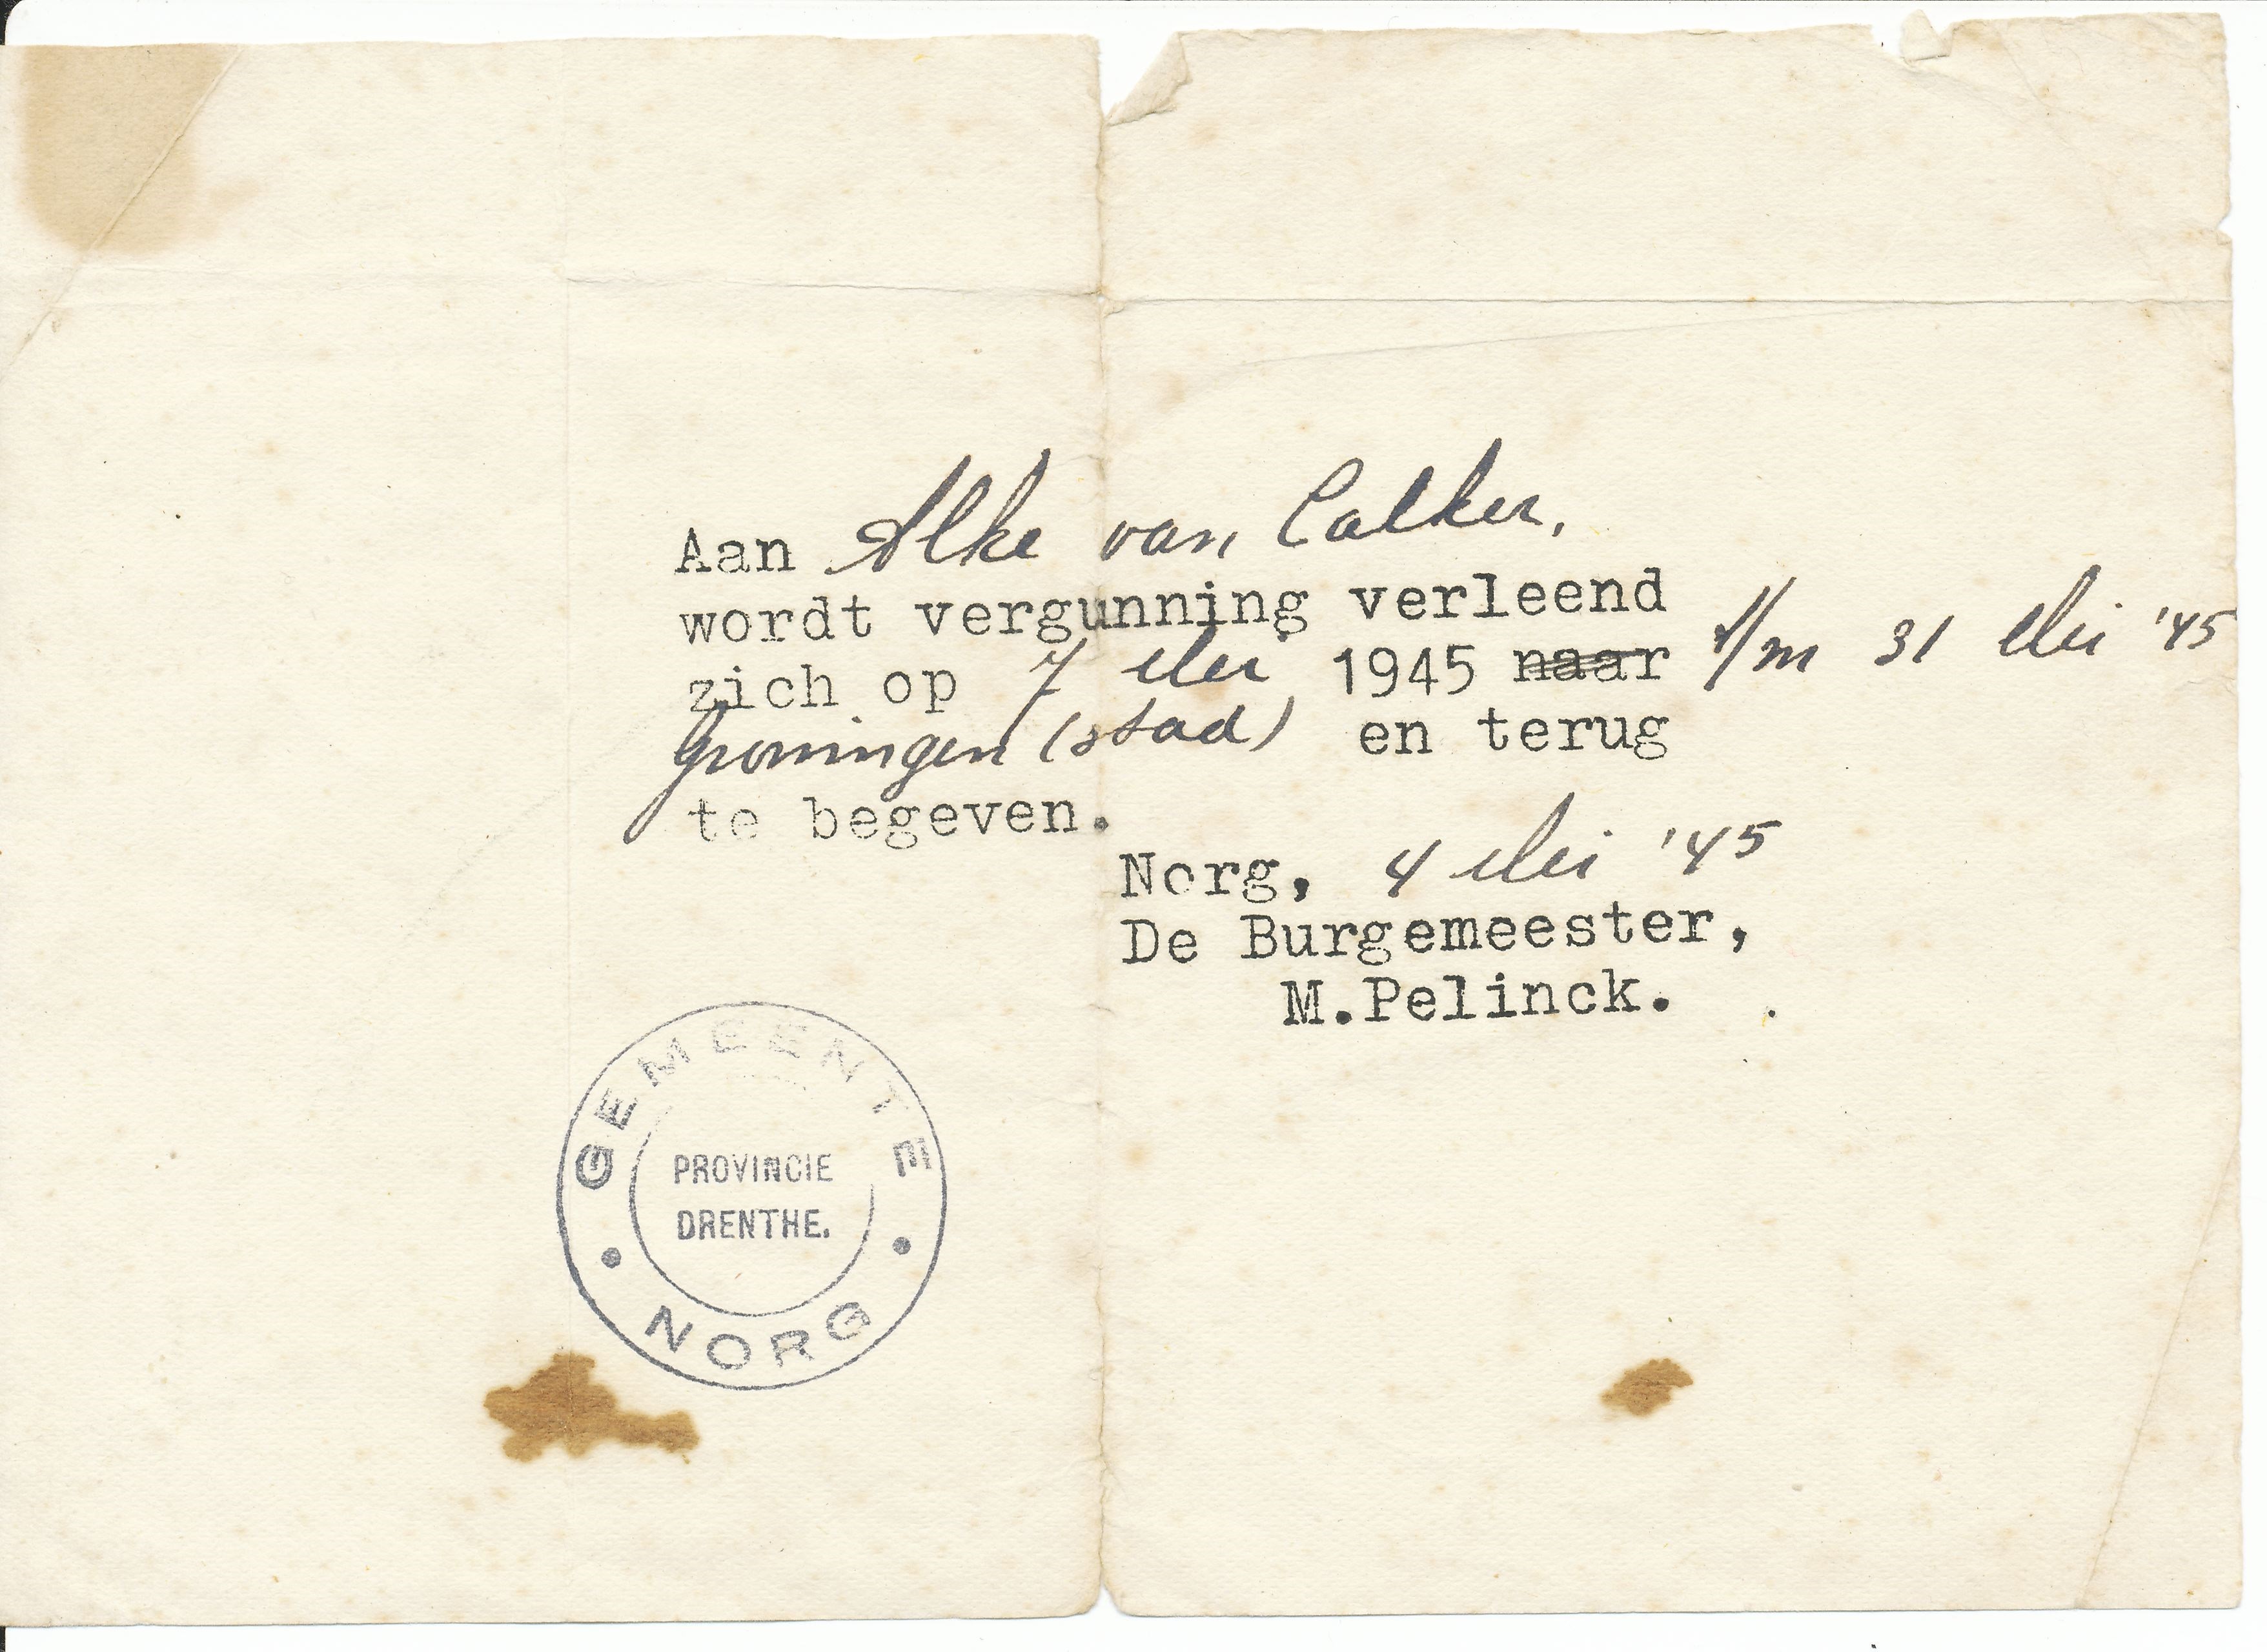 Aan Alke van Calker,
wordt vergunning verleend
zich op 7 Mei 1945 naar t/m 31 Mei '45
Groningen (stad) en terug
te begeven.
Norg, 4 Mei '45
De Burgemeester,
M.Pelinck.
GEMEENTE
PROVINCIE
DRENTHE.
NORG